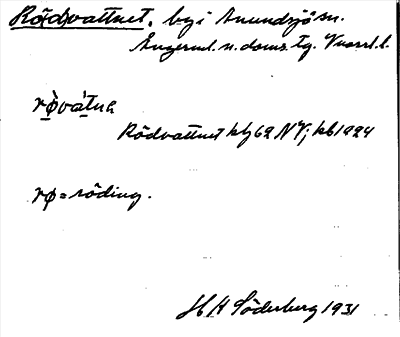 Rö(d)vattnet, by i Anundsjö sn.
Ångerml. n. doms. tg. Vnorrl. l.
rø̀vát̲na
Rödvattnet kbl 62 NV; kb 1924
rø = röding.
H H Söderberg 1931